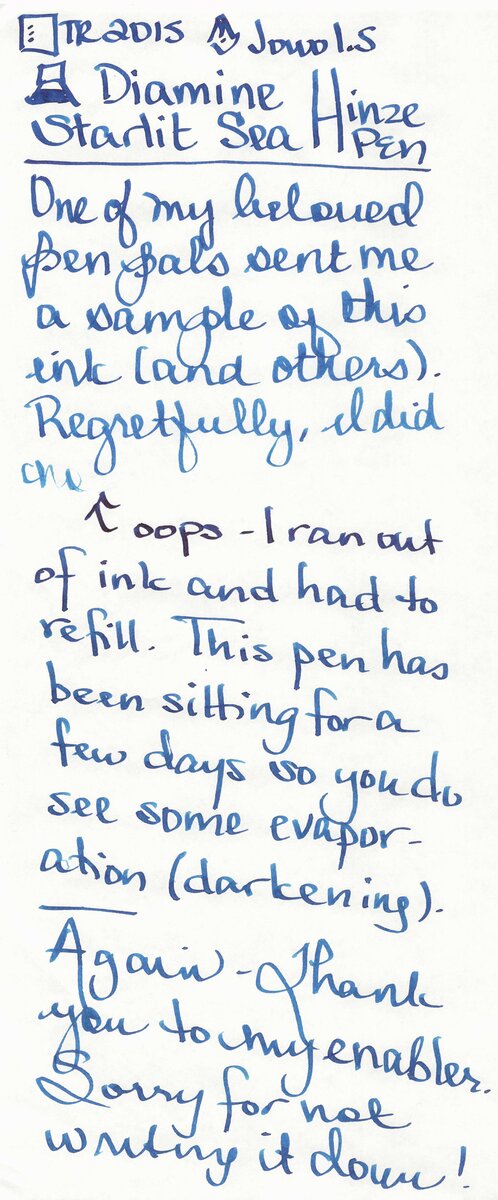 TR 2015 Jowo 1.5
Diamine
Starlit Sea Hinze Pen
One of my beloved
pen pals sent me
a sample of this
ink (and others).
Regretfully, I did
↑ oops - I ran out
of ink and had to
refill. This pen has
been sitting for a
few days so you do
see some evapor-
ation (darkening).
Again - Thank
you to my enabler.
Sorry for not
writing it down!